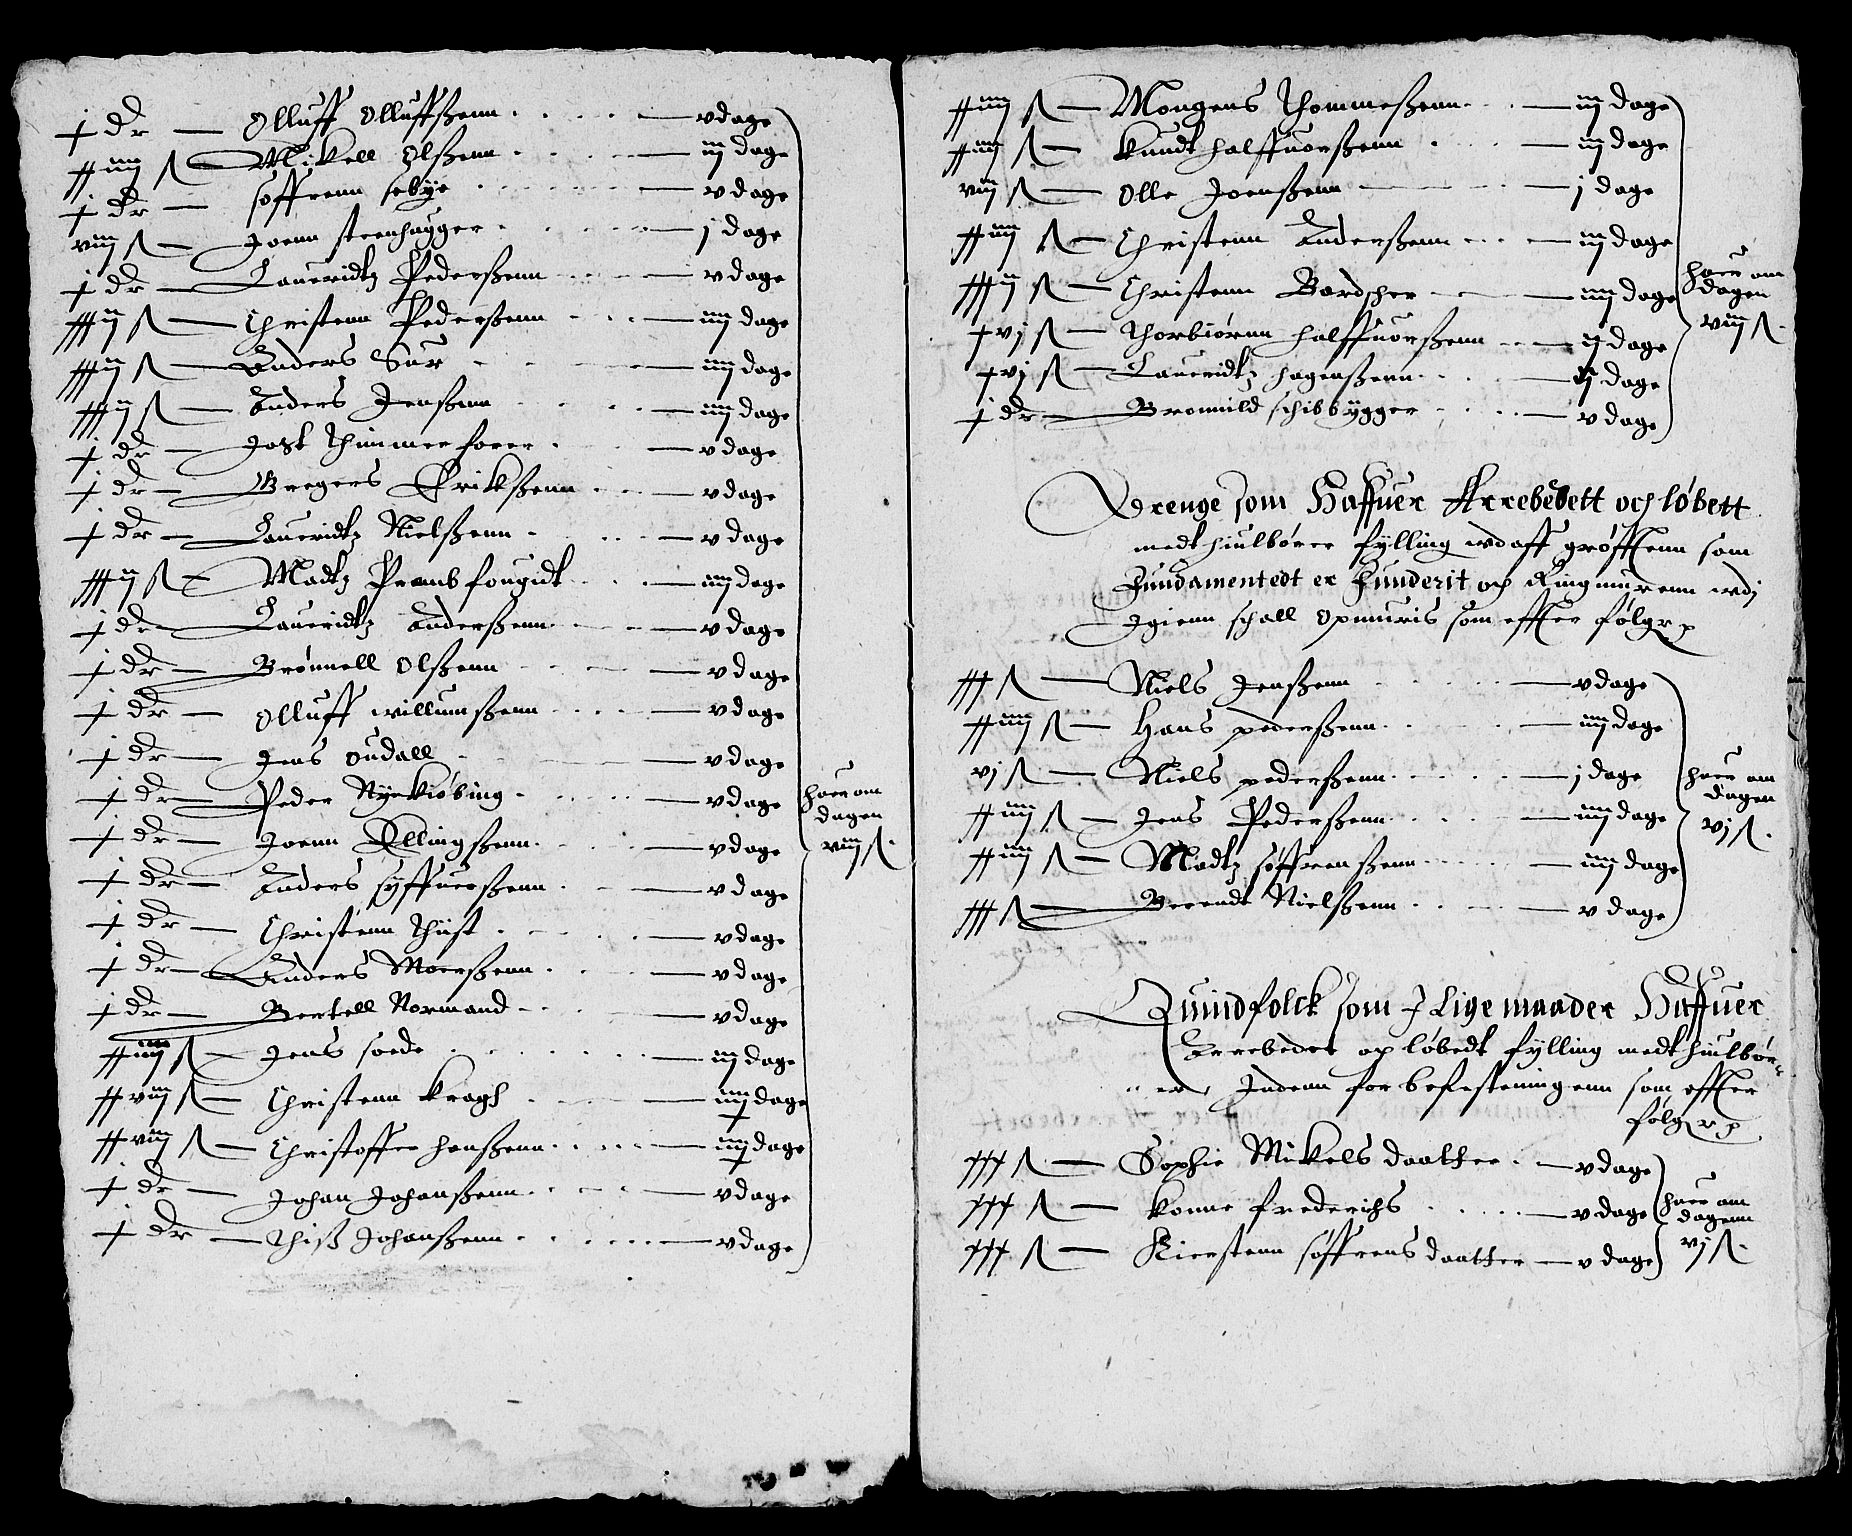 j dr — Olluff Olluffßenn — v dage
xxiiij ſ — Mickell Olßenn — iij dage
j dr — söffrenn sebye — v dage
viij ſ — Joenn steenhugger — j dage
j dr — Laueridtz Pederßenn — v dage
xxxij ſ — Christenn Pederßenn — iiij dage
xxxij ſ — Anders Sur — iiij dage
xxxij ſ — Anders Jenßenn — iiij dage
j dr — Jost Thimmer forer — v dage
j dr — Gregers Erikßenn — v dage
j dr — Laueridtz Nielßenn — v dage
xxxij ſ — Madtz Prambfougidt — iiij dage
j dr — Laueridtz Anderßenn — v dage
j dr — Brönnell Olßenn — v dage
j dr — Olluff willumßenn — v dage
j dr — Jens Oudall — v dage
j dr — Peder Nyekiöbing — v dage
j dr — Joenn Ellingßenn — v dage
j dr — Anders syffuerßenn — v dage
j dr — Christenn Thüst — v dage
j dr — Anders Moerßenn — v dage
j dr — Bertell Normand — v dage
xxiiij ſ — Jens soede — iij dage
xxviij ſ — Christenn Kragh — iiij dage
xxviij ſ — Christoffer hanßenn — iiij dage
j dr — Johan Johanßenn — v dage
j dr — Thiß Johanßenn — v dage
huer om
dagen
viij ſ.
xxiiij ſ — Mougens Thommeßenn — iij dage
xxiiij ſ — Knudt halffuorßenn — iij dage
viij ſ — Olle Joenßenn — j dage
xxiiij ſ — Christenn Anderßenn — iij dage
xxxij ſ — Christenn Bardscher — iiij dage
xvj ſ — Thorbiörnn halffuorßenn — ij dage
xvj ſ — Lauridtz hagenßenn — ij dage
j dr — Bromild schibbygger — v dage
huer om
dagen
viij ſ.
Drenge som Haffuer Arrebedett och löbett
medt hiulbörer fylling udaff gröfften som
Fundamentedt er funderit op Ringmurenn udj
Igienn schall Opmuris som effter fölger
xxx ſ — Niels Jenßenn — v dage
xxiiij ſ — Hans pederßenn — iiij dage
vj ſ — Niels pederßenn — j dage
xxiiij ſ — Jens Pederßenn — iiij dage
xxiiij ſ — Madtz söffrenßenn — iiij dage
xxx ſ — Berendt Nielßenn — v dage
huer om
dagen
vj ſ.
Quindfolck som J Lige maader Haffuer
Arrebedet op löbedt fylling medt hiulbör-
er, Indenn for befesteningenn som effter
fölger
xxx ſ — Sophie Mikels daatter — v dage
xxx ſ — Konne frederichs — v dage
xxx ſ — Kierstenn söffrens daatter — v dage
huer om
dagenn
vj ſ.